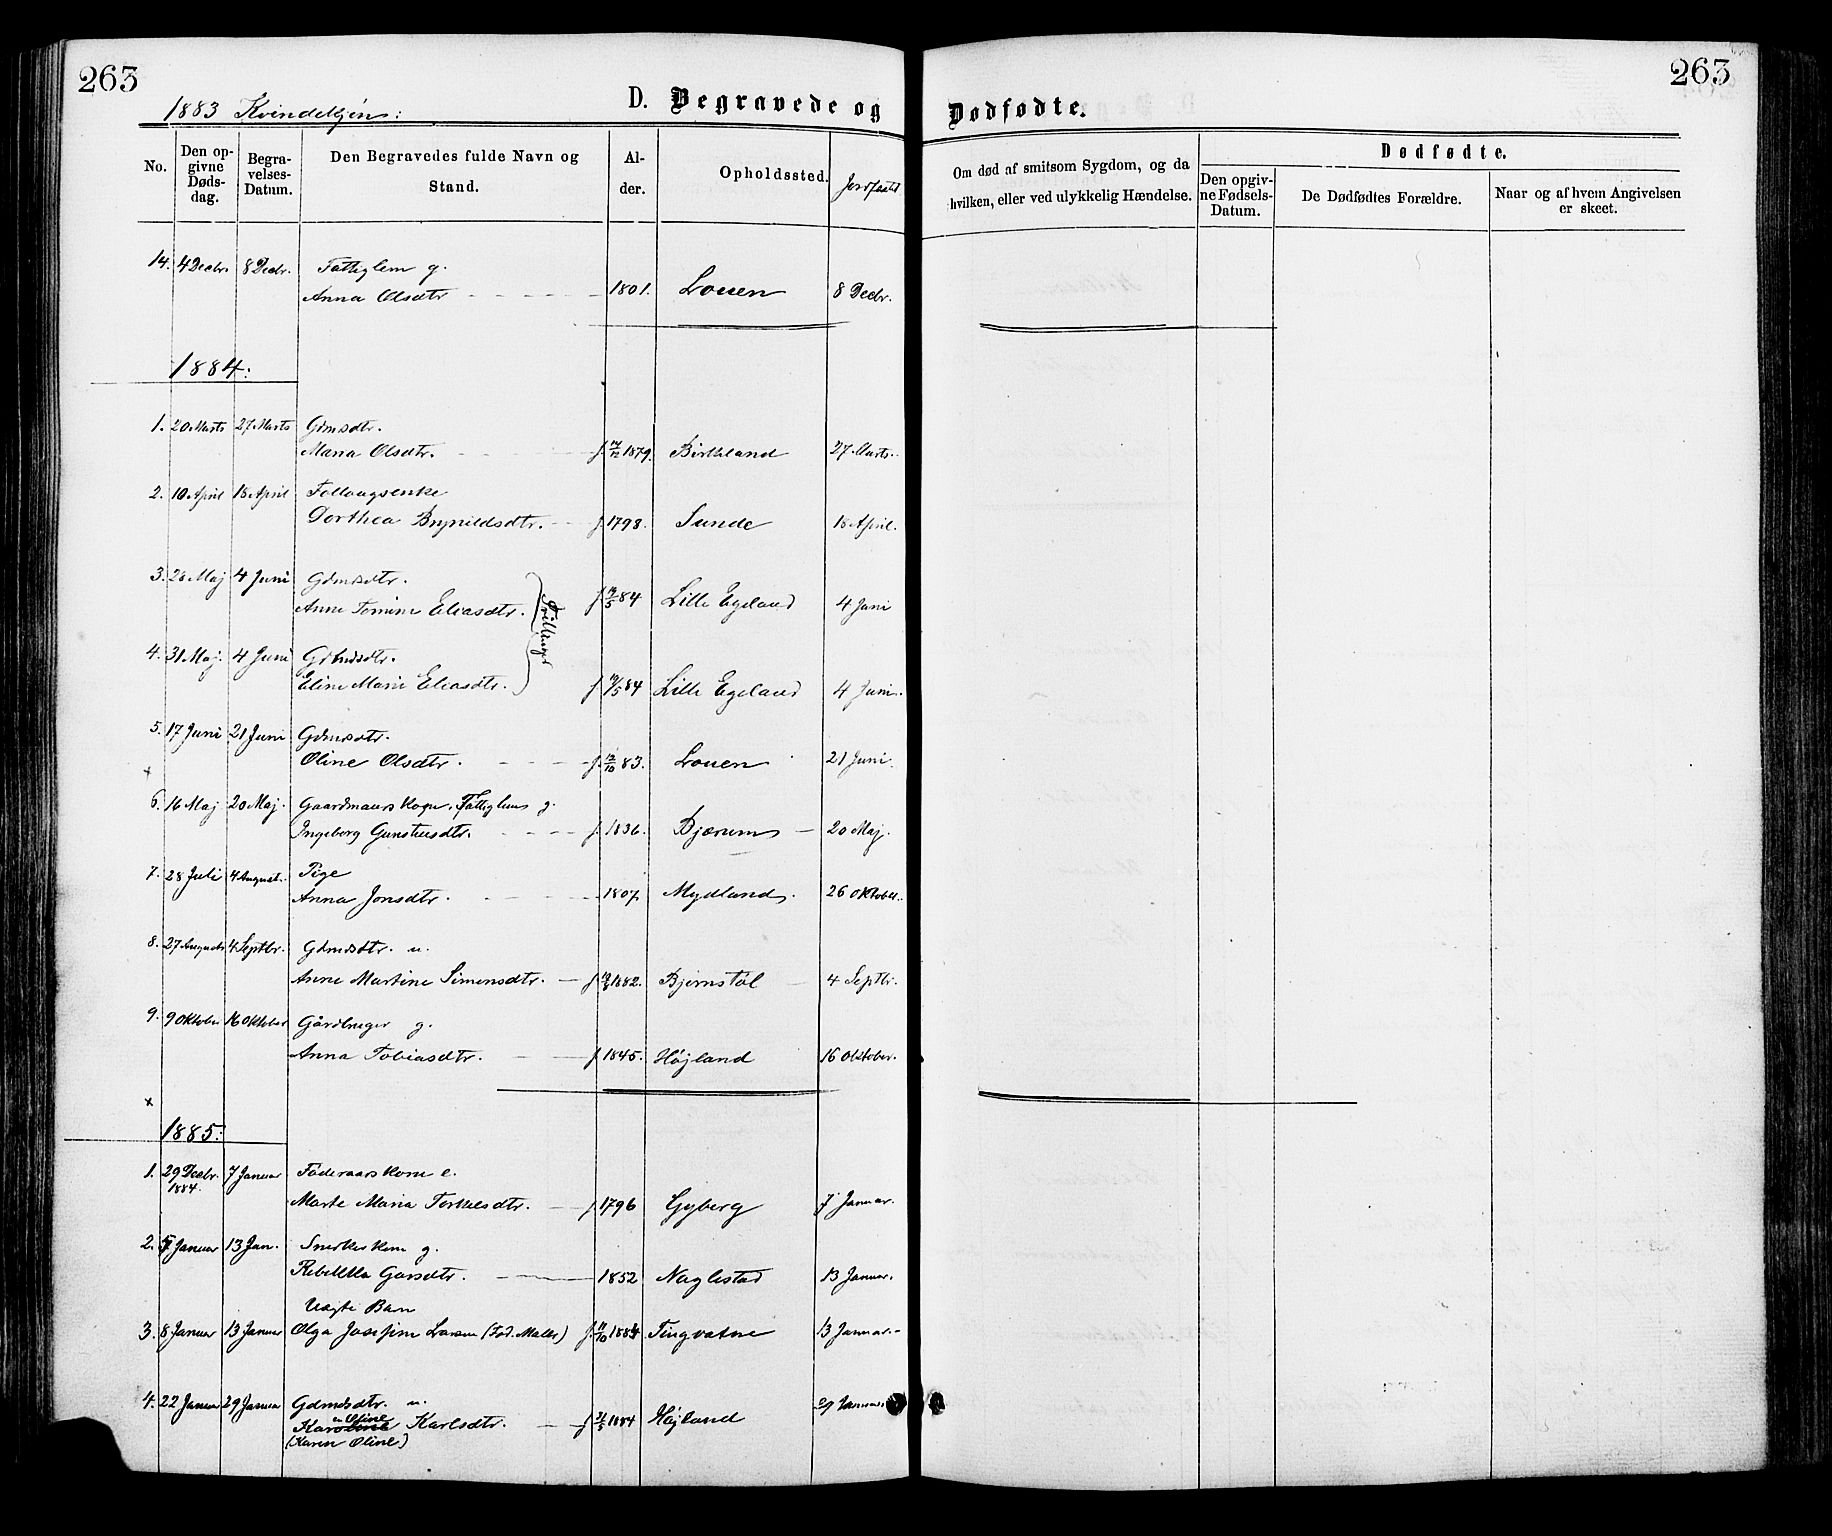 263
263
1883 Kvindekjøn:
D. Begravede og Dødfødte.
No.
Den opgivne Dødsdag.
Begravelses-Datum.
Den Begravedes fulde Navn og Stand.
Alder.
Opholdssted.
Jordfæstet
Om død af smitsom Sygdom, og da hvilken, eller ved ulykkelig Hændelse.
Dødfødte.
Den opgivne Fødsels-Datum.
De Dødfødtes Forældre.
Naar og af hvem Angivelsen er skeet.
14. 4 Decbr. 8 Decbr. Fattiglem g.
Anna Olsdtr 1801. Louen 8 Decbr.
1884:
1. 20 Marts 27 Marts Gdmsdtr.
Maria Olsdtr. f. 1879. Birkeland 27 Marts.
2. 10 April 18 April
Dorthea Brynildsdtr. f. 1798. Sunde 18 April.
3. 28 Maj 4 Juni Gdmsdtr.
Anne Tomine Eliasdtr. f. 84 Lille Egeland 4 Juni
Trillinger
4. 31 Maj. 4 Juni Gdmsdtr.
Eline Marie Eliasdtr. f. 84 Lille Egeland 4 Juni.
5. 17 Juni 21 Juni Gdmsdtr.
Oline Olsdtr. f. 12/10 83. Louen 21 Juni.
6. 16 Maj 20 Maj. Gaardmandskone, Fattiglem g.
Ingeborg f. 1836. Bjærum 20 Maj.
7. 28 Juli 4 August. Pige
Anna Jonsdtr. 1807 Mydland. 26 Oktober.
8. 27 August 4 Septbr. Gdmsdtr. u.
Anne Martine Simensdtr. f. 1882. Bjørnstøl 4 Septbr.
9. 9 Oktober 16 Oktober g.
Anna Tobiasdtr. f. 1845. Højland 16 Oktober.
1885:
1. 29 Decbr. 1884. 7 Januar Føderaadskone e.
Marte Maria Torkelsdtr. f. 1796 Gyberg 7 Januar.
2. 5 Januar 13 Jan. Snedkerskone g.
Rebekka 1852 Naglestad 13 Januar.
Uægte Barn
3. 8 Januar 13 Januar Olga Josefine Larsen f. 1884 Tingvatne 13 Januar.
4. 22 Januar 29 Januar Gdmdsdtr. u.
Oline
Karoline Karlsdtr. f. 1884 Højland 29 Januar.
(Karen Oline)